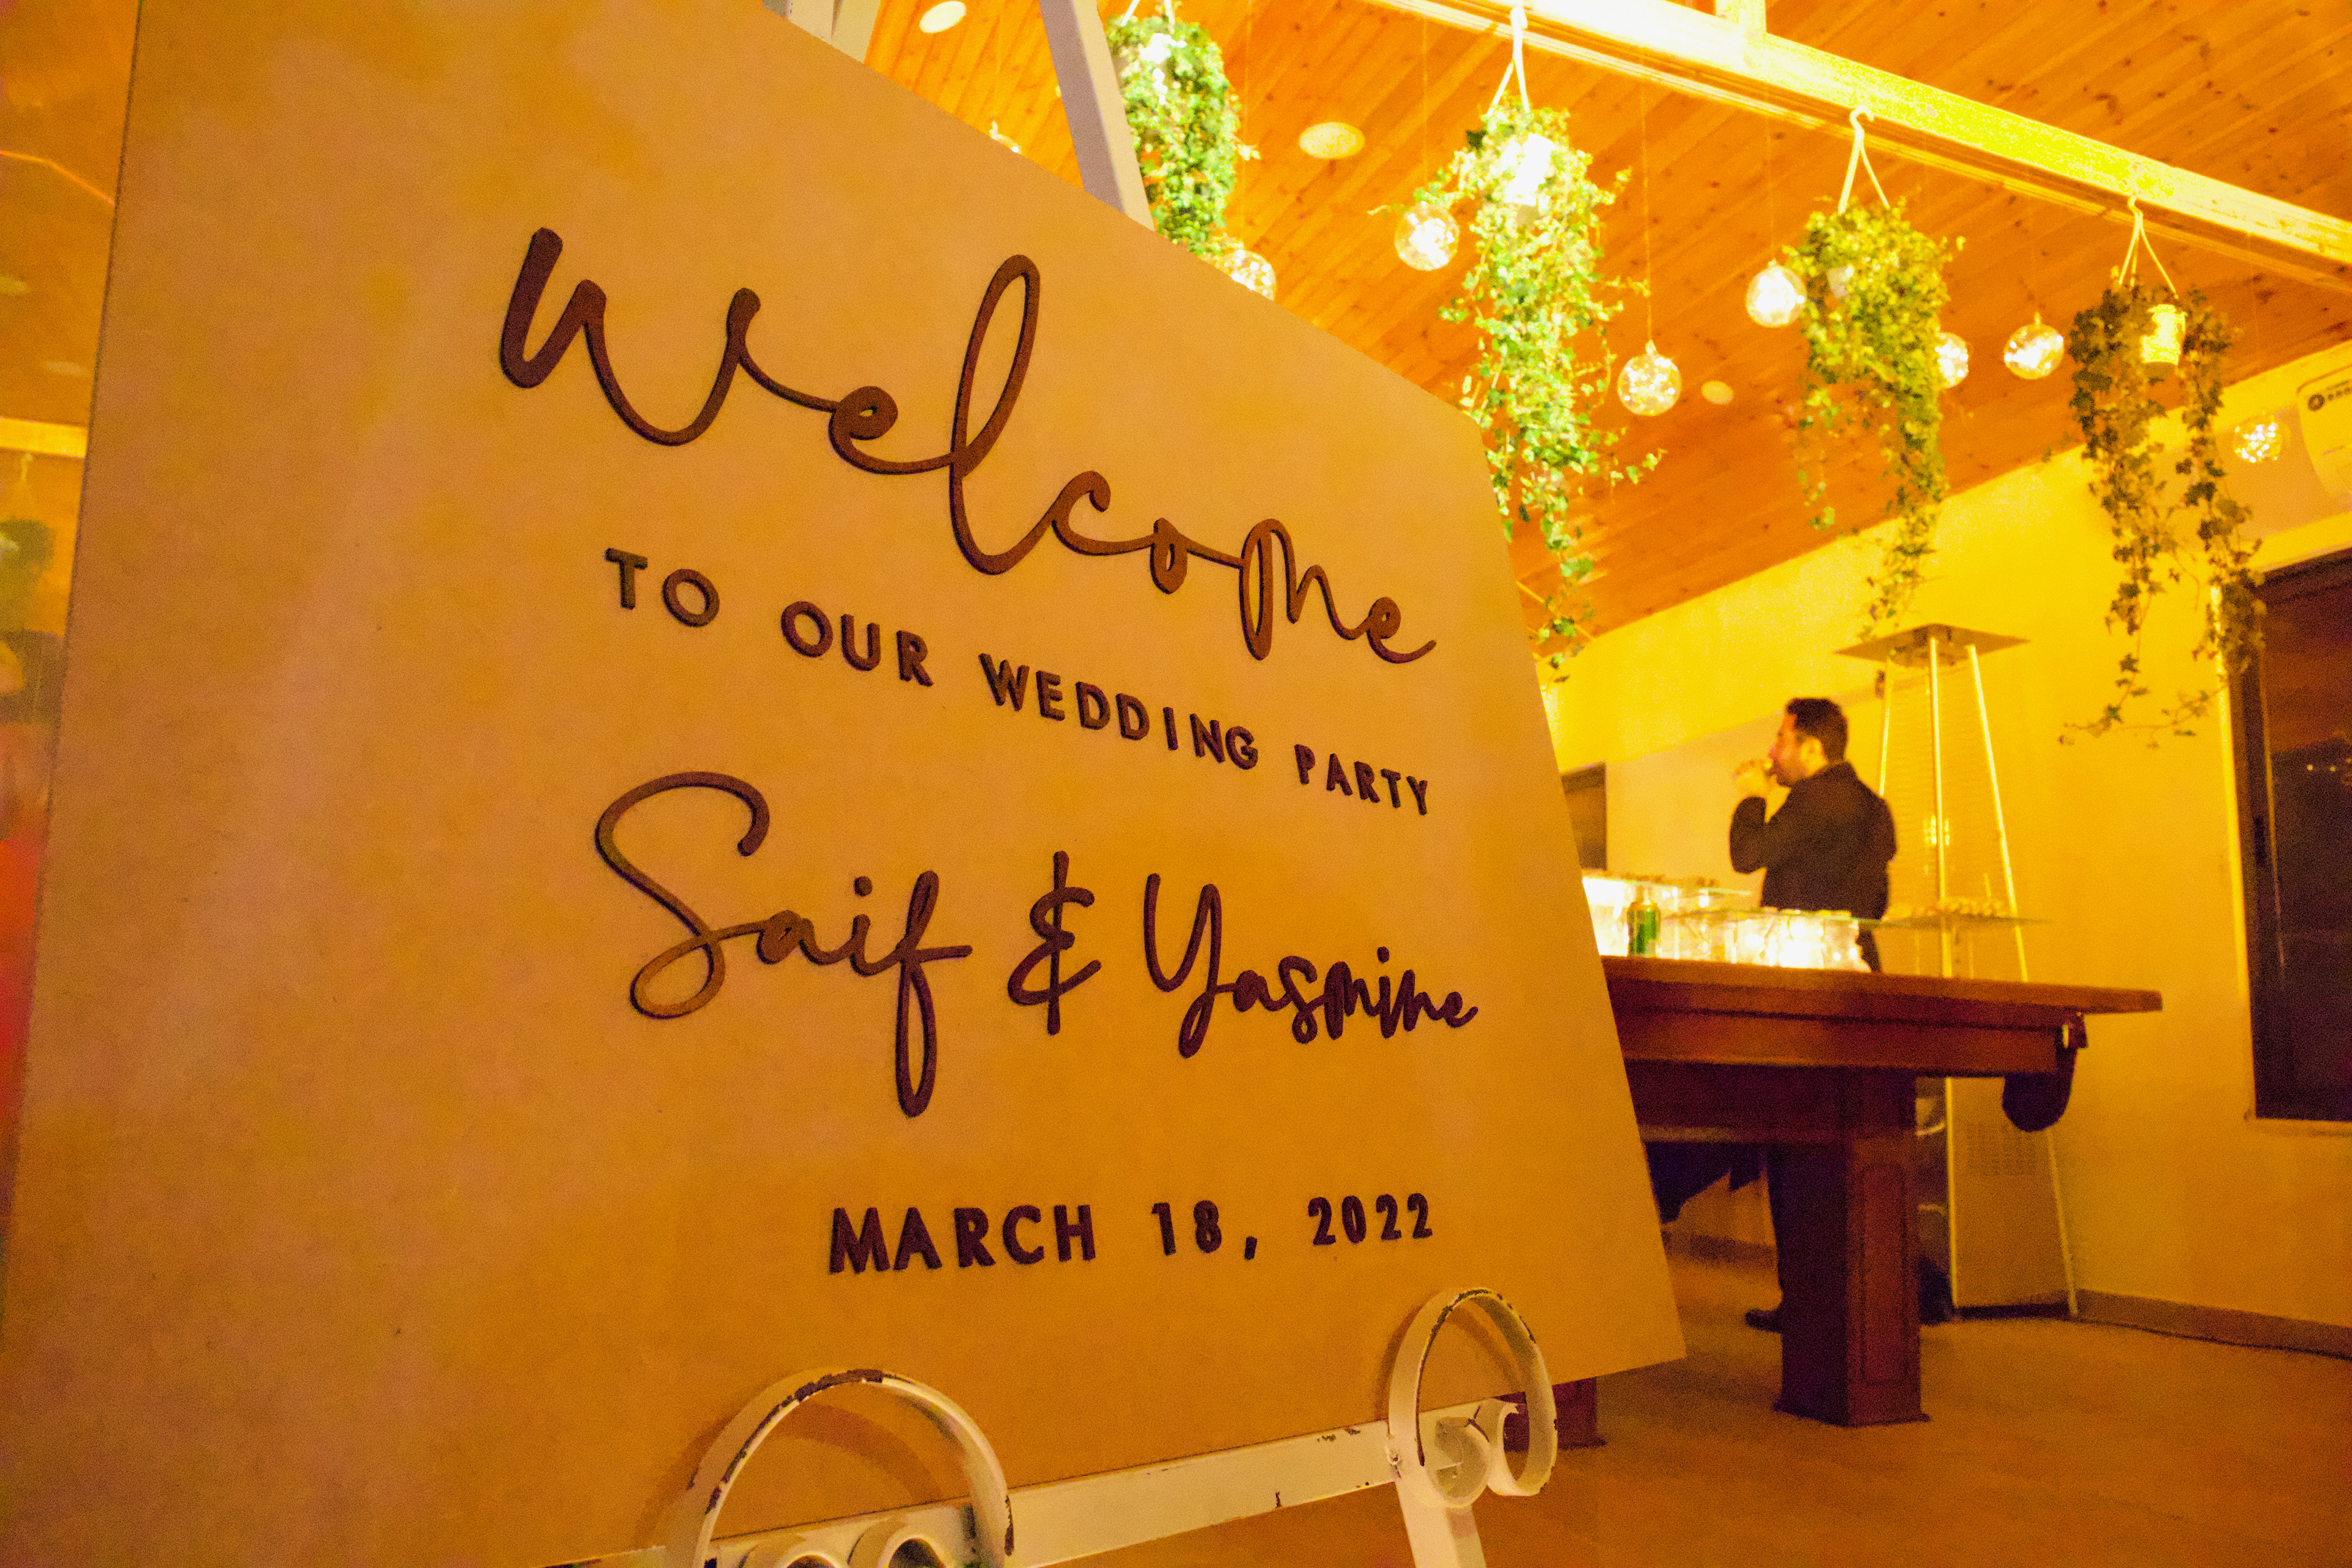 Welcome
TO OUR WEDDING PARTY
Saif & Yasmine
MARCH 18, 2022